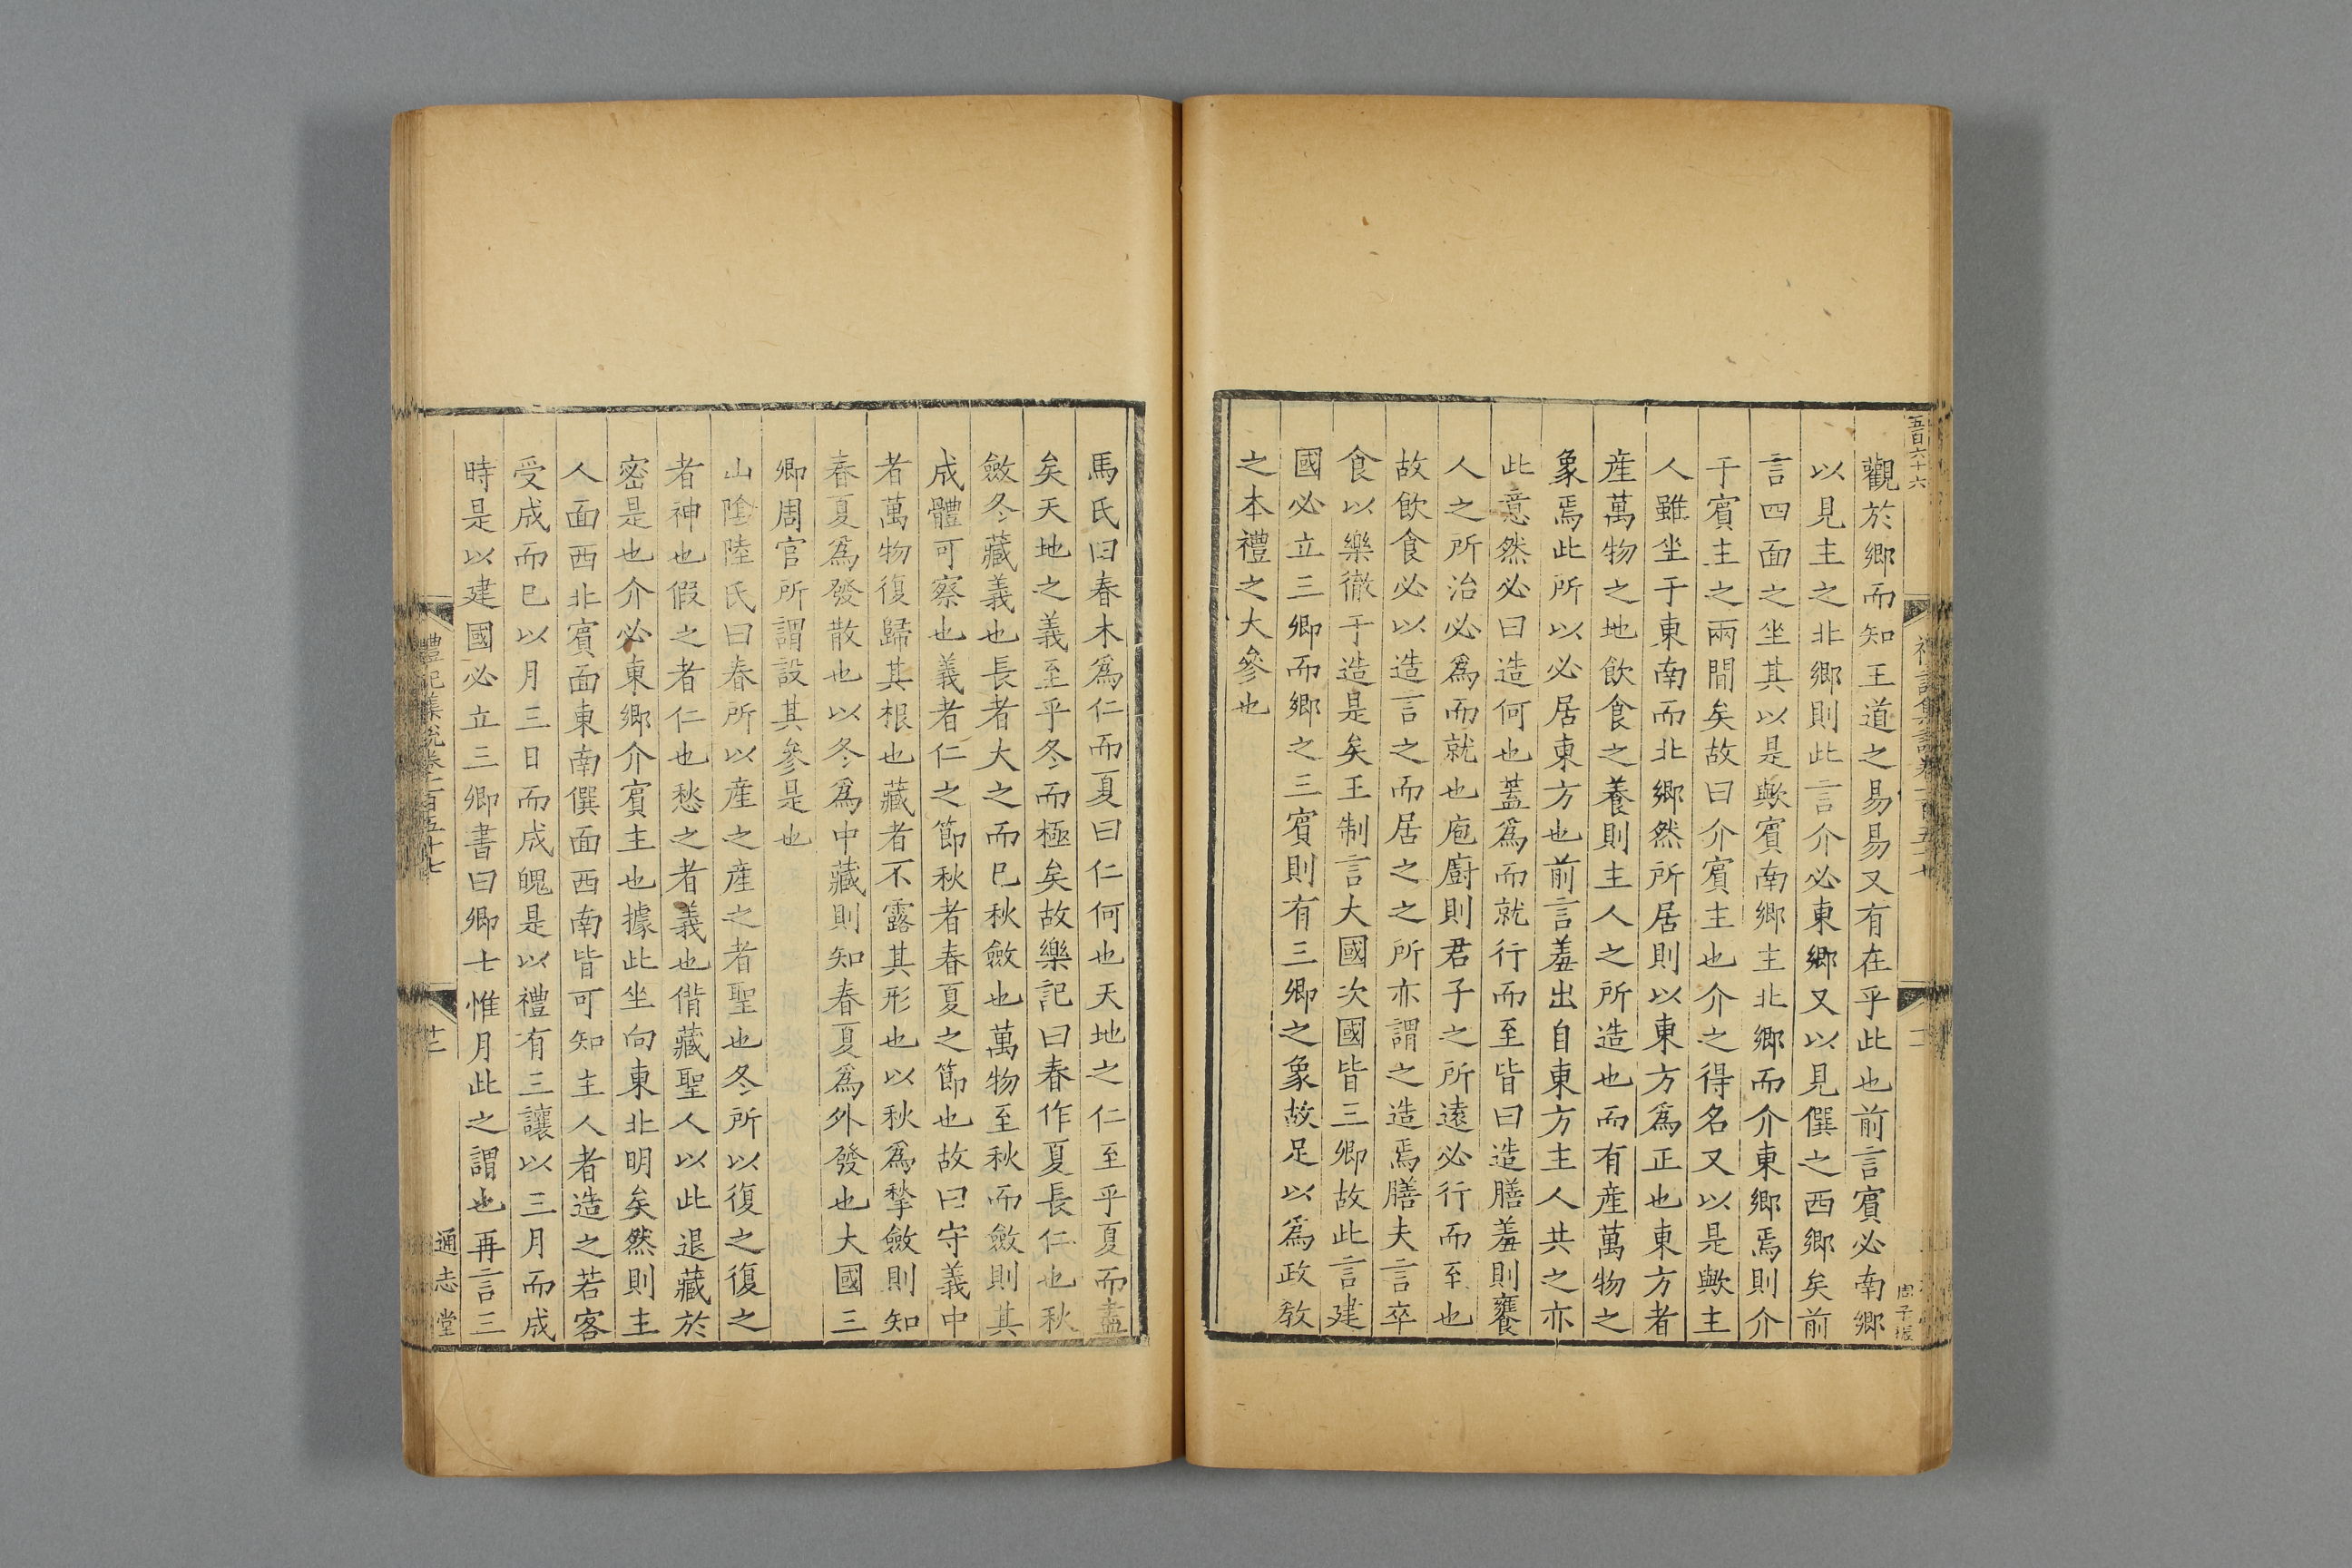 五百六十六
周子振
觀於鄉而知王道之易易又有在乎此也前言賔必南鄉
以見主之北鄉則此言介必東鄉又以見僎之西鄉矣前
言四面之坐其以是歟賔南鄉主北鄉而介東鄉焉則介
于賔主之兩間矣故曰介賔主也介之得名又以是歟主
人雖坐于東南而北鄉然所居則以東方爲正也東方者
産萬物之地飲食之養則主人之所造也而有産萬物之
象焉此所以必居東方也前言羞出自東方主人共之亦
此意然必曰造何也蓋爲而就行而至皆曰造膳羞則饔
人之所治必爲而就也庖廚則君子之所遠必行而至也
故飲食必以造言之而居之之所亦謂之造焉膳夫言卒
食以樂徹于造是矣王制言大國次國皆三卿故此言建
國必立三卿而鄉之三賔則有三卿之象故足以爲政教
之本禮之大參也
馬氏曰春木爲仁而夏曰仁何也天地之仁至乎夏而盡
矣天地之義至乎冬而極矣故樂記曰春作夏長仁也秋
斂冬藏義也長者大之而已秋斂也萬物至秋而斂則其
成體可察也義者仁之節秋者春夏之節也故曰守義中
者萬物復歸其根也藏者不露其形也以秋爲揫斂則知
春夏爲發散也以冬爲中藏則知春夏爲外發也大國三
卿周官所謂設其參是也
山陰陸氏曰春所以産之産之者聖也冬所以復之復之
者神也假之者仁也愁之者義也偝藏聖人以此退藏於
密是也介必東鄉介賔主也據此坐向東北明矣然則主
人面西北賔面東南僎面西南皆可知主人者造之若客
受成而已以月三日而成魄是以禮有三讓以三月而成
時是以建國必立三卿書曰卿士惟月此之謂也再言三
禮記集說卷一百五十七
通志堂